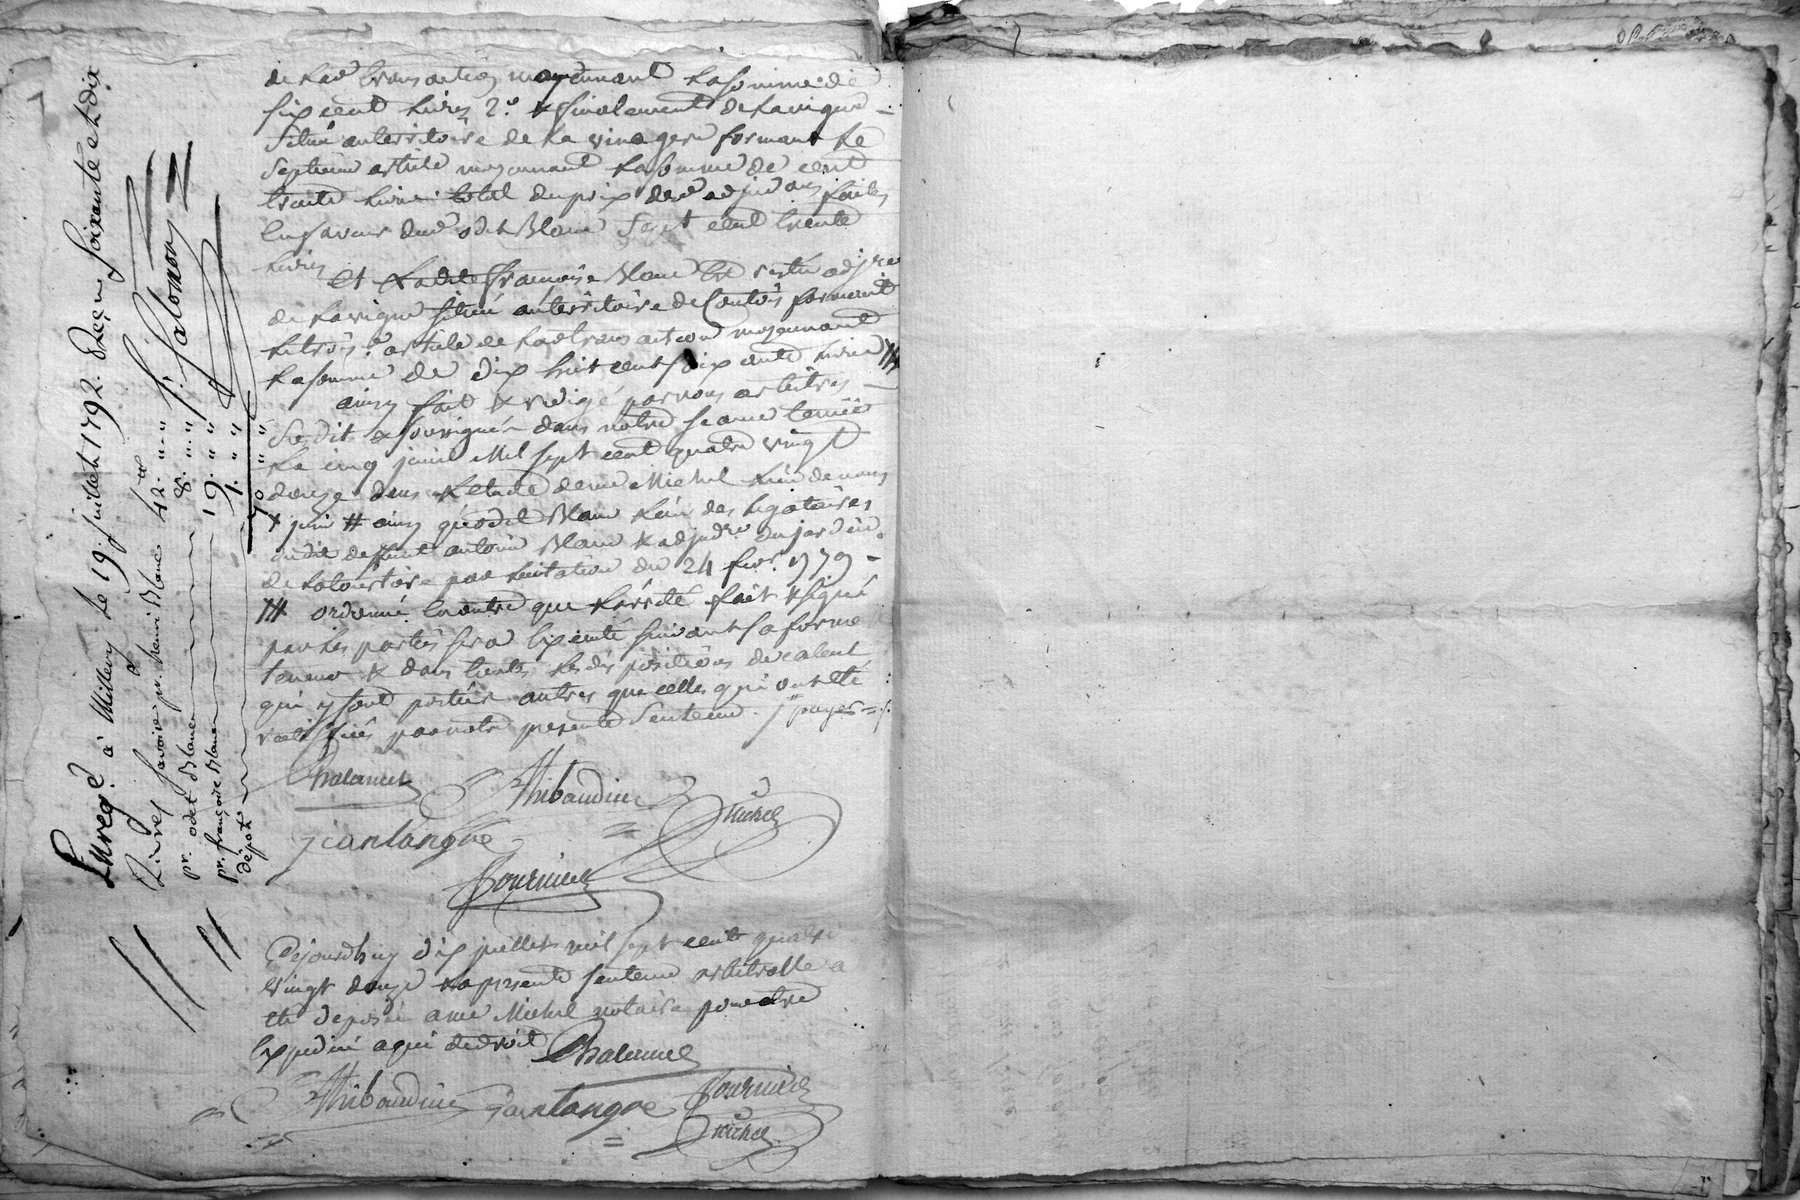 de lad. transaction moyennant la somme de
six cent livres 2.° & finalement de la vigne
située au territoire de la vinagere formant le
septieme article moyennant la somme de cent
trente livres total du prix des adjud.ons faites
en faveur dud. odet Blanc sept cent trente
livres
et ladite françoise Blanc est restée adj.re
de la vigne située au territoire de formant
le trois.e article de lad. transaction moyennant
la somme de dix huit cent soixante livres #
ainsy fait & redigé par nous arbitres
susdit & soussignés dans notre séance tenüe
le cinq juin mil sept cent quatre vingt
douze dans l'etude de me Michel l'un de nous
+ juin # ainsy qu'odet Blanc l'un des légataires
dudit deffunt antoine Blanc & adjud.re du jardin
de par licitation du 24 fevr. 1779
# ordonné en outre que l'arrêté fait & signé
par les parties sera executé suivant sa forme
teneur & dans toutes les dispositions
qui y sont portées autres que celles qui ont été
rectifiées par notre presente sentence.
Chalamel Thibaudier Michel
Jcarlangue
Fournier
Cejourdhuy dix juillet mil sept cent quatre
vingt douze la presente sentence arbitralle a
été deposée a me Michel notaire pour etre
expediée a qui de droit Chalamel
Thibaudier Jcarlangue Fournier
Michel
Enreg.é à Millery le 19 juillet 1792. Reçu soixante et dix
Livres savoir pr. henri Blanc 42.tt " " "
pr. odet Blanc 8. " " "
pr. françoise Blanc 19. " "
dépot 1. " "
70 " "
Salomon